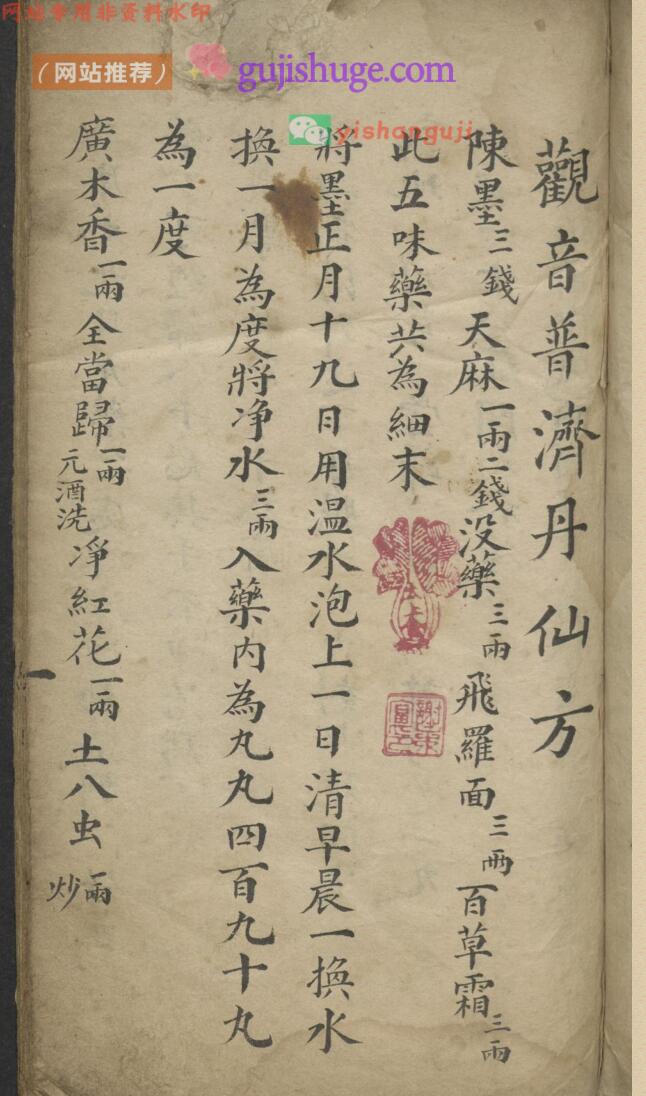 网站专用非资料水印
（网站推荐）
gujishuge.com
yishanguji
觀音普濟丹仙方
陳墨三錢天麻一兩二錢没藥三兩飛羅面三兩百草霜三兩
此五味藥共為細末
將墨正月十九日用温水泡上一日清早晨一換水
換一月為度將净水三兩入藥內為丸丸四百九十丸
為一度
廣木香一兩全當歸一兩元酒洗净紅花一兩土八虫一兩炒